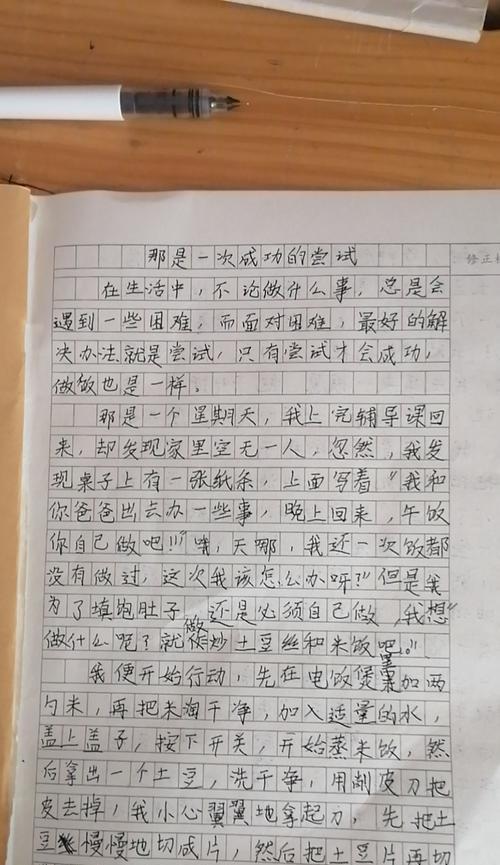 那是一次成功的尝试
修正
在生活中，不论做什么事，总是会
遇到一些困难，而面对困难，最好的解
决办法就是尝试，只有尝试才会成功，
做饭也是一样。
那是一个星期天，我上完辅导课回
来，却发现家里空无一人，忽然，我发
现桌子上有一张纸条，上面写着"我和
你爸爸出去办一些事，晚上回来，午饭
你自己做吧!!!"哦，天哪，我还一次饭都
没有做过，这次我该怎么办呀?"但是我
为了填饱肚子，还是必须自己做，我想"
做什么呢？就做炒土豆丝和米饭吧。"
我便开始行动，先在电饭煲里加两
勺米，再把米淘干净，加入适量的水，
盖上盖子，按下开关，开始蒸米饭，然
后拿出一个土豆，洗干净，用削皮刀把
皮去掉，我小心翼翼地拿起刀，先把土
豆慢慢地切成片，然后把土豆片再切